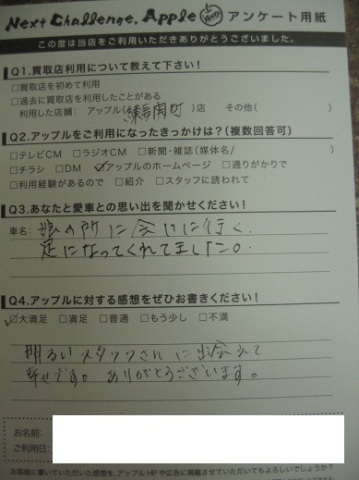 Next Challenge. Apple アンケート用紙
この度は当店をご利用いただきありがとうございました。
Q1.買取店利用について教えて下さい!
□買取店を初めて利用
□過去に買取店を利用したことがある
利用した店舗: アップル( 練馬関町 )店 その他( )
Q2.アップルをご利用になったきっかけは?(複数回答可)
□テレビCM □ラジオCM □新聞・雑誌(媒体名/ )
□チラシ □DM ☑アップルのホームページ □通りがかりで
□利用経験があるので □紹介 □スタッフに誘われて
Q3.あなたと愛車との思い出を聞かせください!
車名: 娘の所に会いに行く、
足になってくれてました。
Q4.アップルに対する感想をぜひお書きください!
☑大満足 □満足 □普通 □もう少し □不満
明るいスタッフさんに出会えて
幸せです。ありがとうございます。
お名前:
ご利用日:
お客様に書いていただいた感想を、アップルHPや広告に掲載させていただいてもよろしいでしょうか?